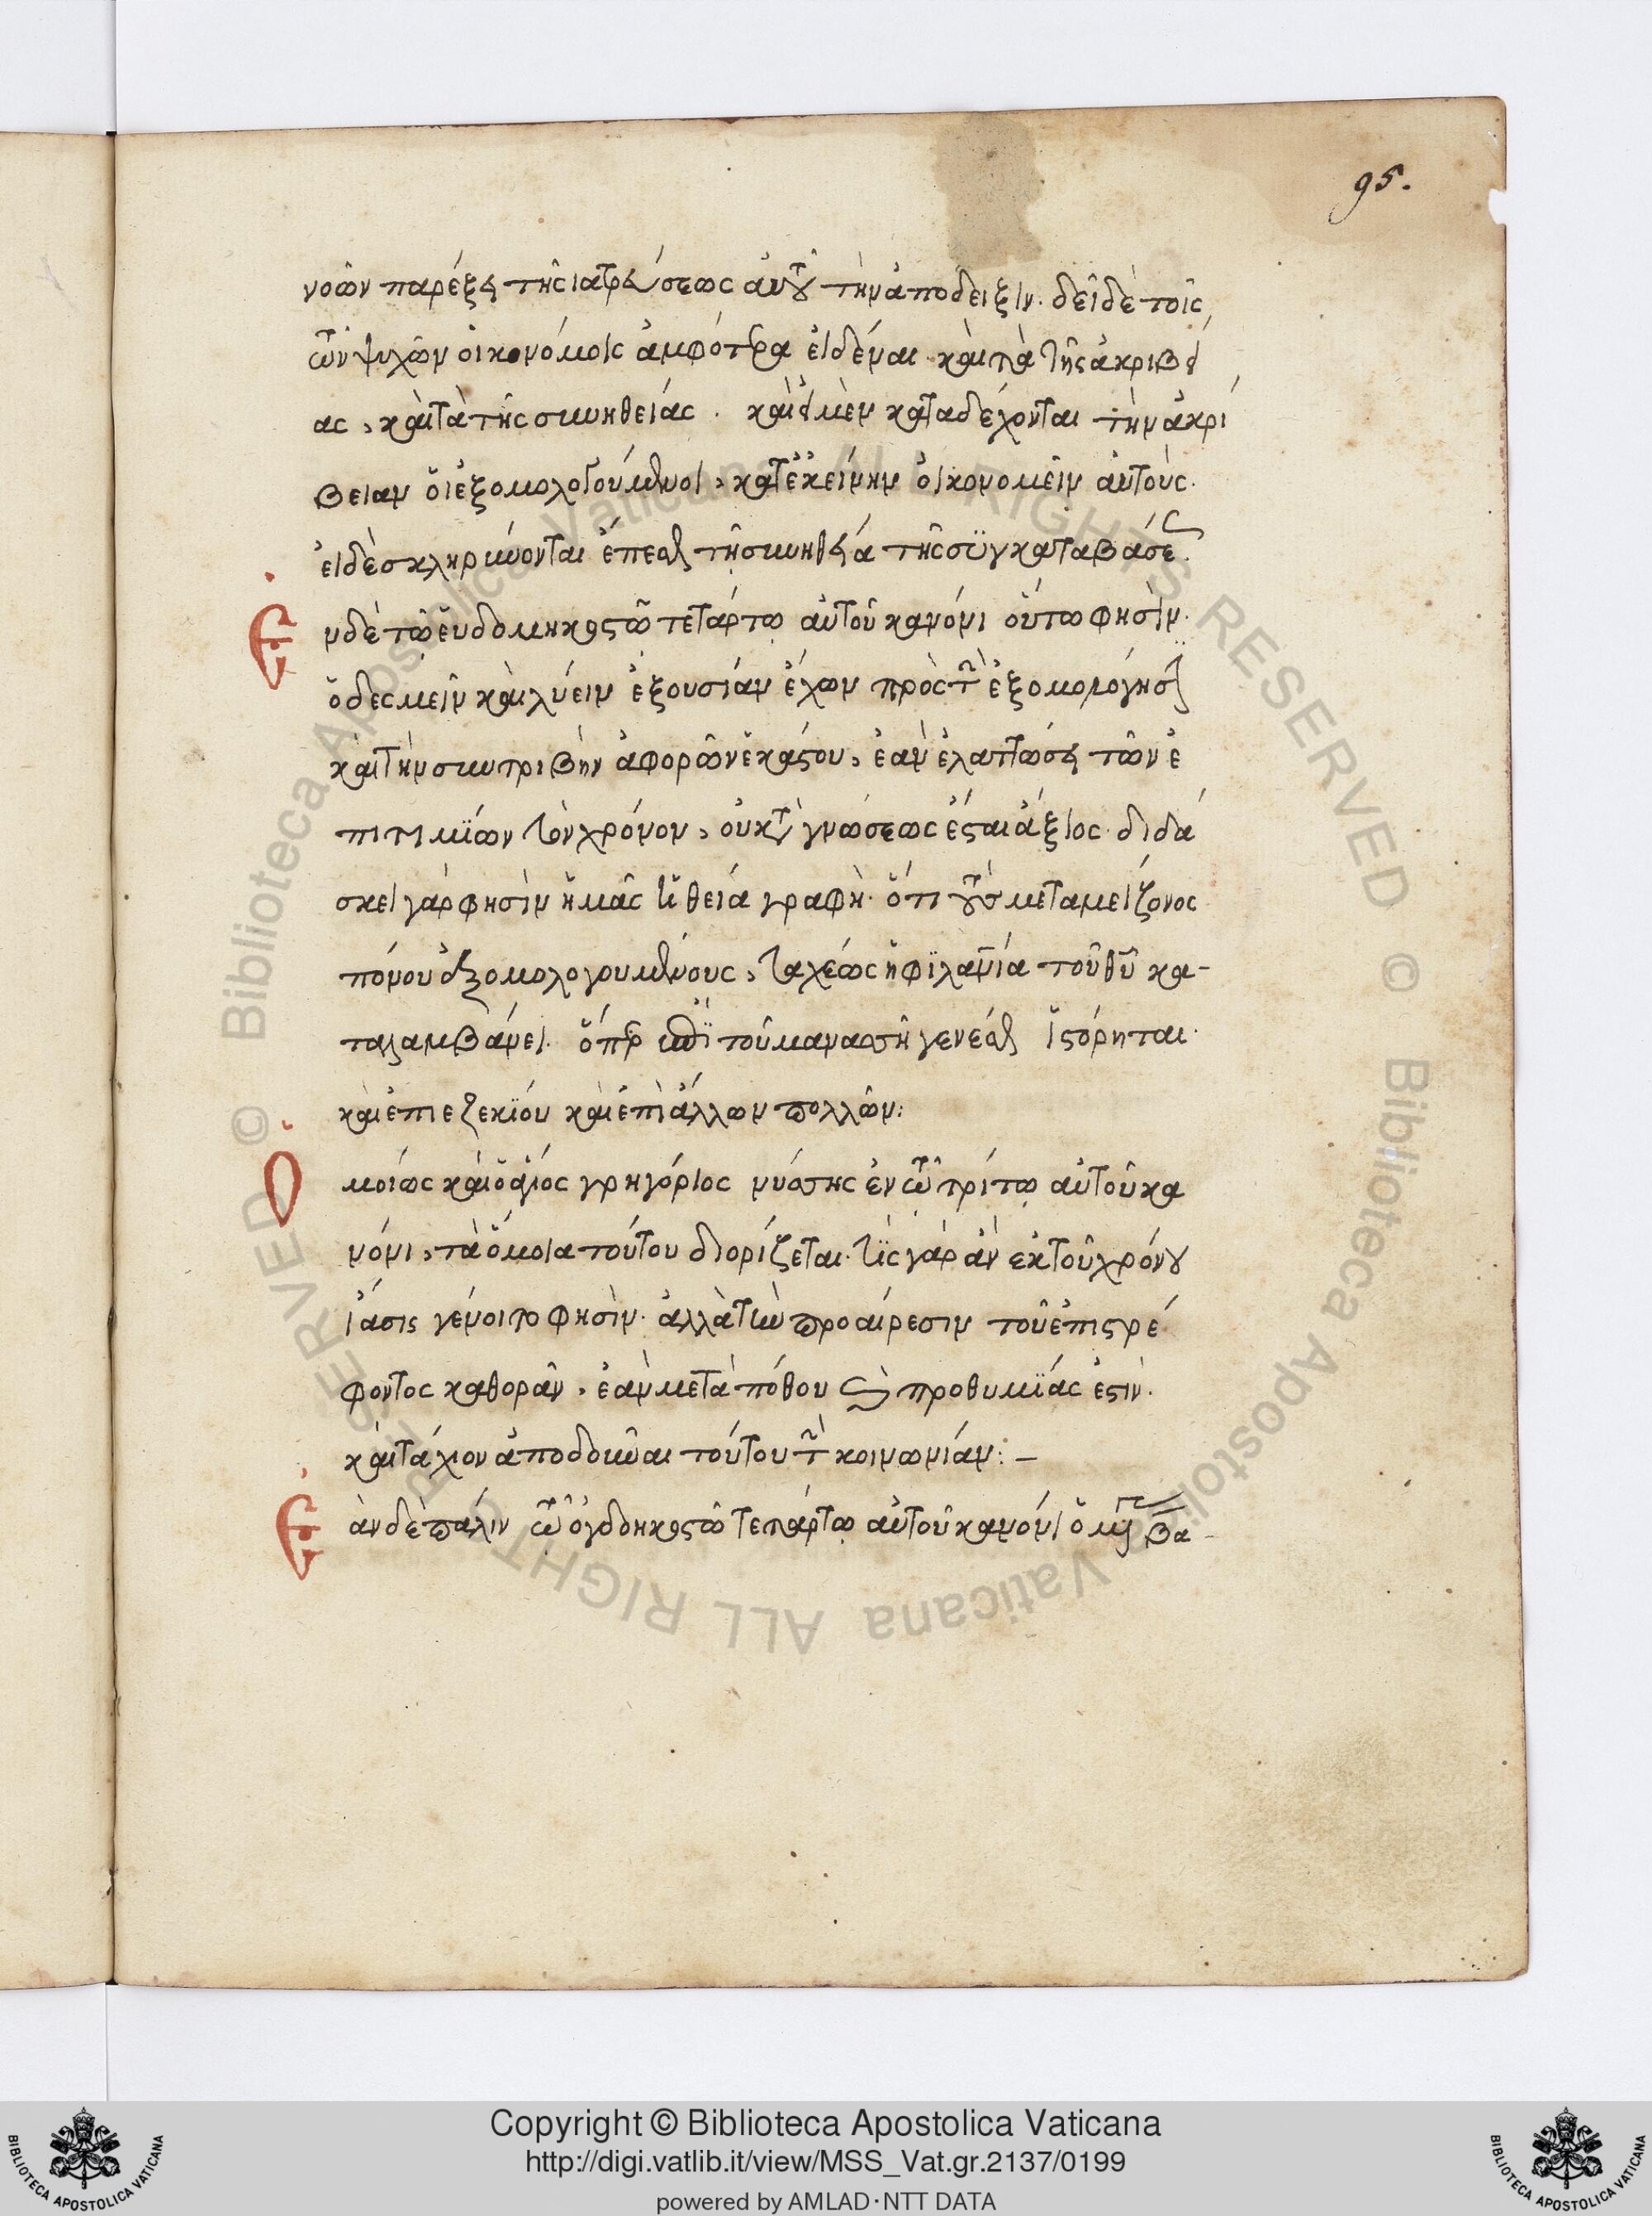 95.
νοῶν παρέξει τῆς ἰατρεύσεως αὐτοῦ τὴν ἀπόδειξιν. δεῖ δὲ τοῖς
τῶν ψυχῶν οἰκονόμοις ἀμφότερα εἰδέναι. καὶ τὰ τῆς ἀκριβεί
ας, καὶ τὰ τῆς συνηθείας. καὶ εἰ μὲν καταδέχονται τὴν ἀκρί
βειαν οἱ ἐξομολογούμενοι, κατ' ἐκείνην οἰκονομεῖν αὐτούς.
εἰ δὲ σκληρύνονται ἕπεσθαι τῇ συνηθείᾳ τῆς συγκαταβάσεως.
Ἐν δὲ τῷ ἑυδομηκοστῷ τετάρτῳ αὐτοῦ κανόνι οὕτω φησίν.
ὁ δεσμεῖν καὶ λύειν ἐξουσίαν ἔχων πρὸς τὴν ἐξομολόγησιν
καὶ τὴν συντριβὴν ἀφορῶν ἑκάστου, ἐὰν ἐλαττώσει τῶν ἐ
πιτιμϊων τὸν χρόνον, οὐ καταγνώσεως ἔσται ἄξιος. διδά
σκει γάρ φησιν ἡμᾶς ἡ θεία γραφὴ. ὅτι τοὺς μετὰ μείζονος
πόνου ἐξομολογουμένους, ταχέως ἡ φϊλανία τοῦ θυ κα-
ταλαμβάνει. ὅπερ ἐπὶ τοῦ μανασσῆ γενέσθαι ἱστόρηται.
καὶ ἐπὶ εζεκϊου καὶ ἐπὶ ἄλλων πολλῶν:
Ὁμοίως καὶ ὁ ἅγιος γρηγόριος νύσσης ἐν τῷ τρίτῳ αὐτοῦ κα
νόνι, τὰ ὅμοια τούτου διορίζεται. τίς γὰρ ἂν ἐκ τοῦ χρόνου
ἴασις γένοιτο φησίν. ἀλλὰ τὴν προαίρεσιν τοῦ ἐπιστρέ
φοντος καθορᾶν, ἐὰν μετὰ πόθου καὶ προθυμϊας ἐστὶν.
καὶ τάχιον ἀποδοῦναι τούτου τὴν κοινωνίαν: –
Ἐὰν δὲ πάλιν τῷ ὀγδοηκοστῷ τετάρτῳ αὐτοῦ κανόνι ὁ μέγας βα-
Copyright © Biblioteca Apostolica Vaticana
http://digi.vatlib.it/view/MSS_Vat.gr.2137/0199
powered by AMLAD·NTT DATA
BIBLIOTECA APOSTOLICA VATICANA
BIBLIOTECA APOSTOLICA VATICANA
© Biblioteca Apostolica Vaticana ALL RIGHTS RESERVED © Biblioteca Apostolica Vaticana ALL RIGHTS RESERVED